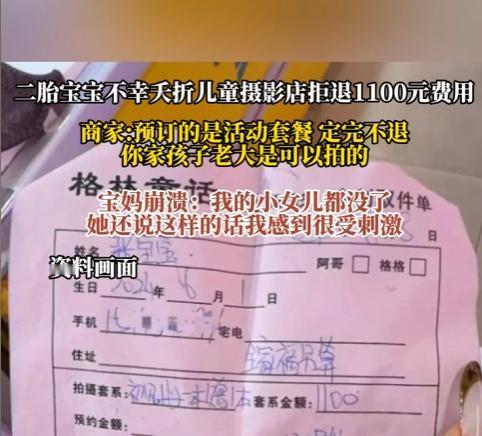 二胎宝宝不幸夭折儿童摄影店拒退1100元费用
商家:预订的是活动套餐 定完不退
你家孩子老大是可以拍的
格林童话
件单
宝妈崩溃：我的小女儿都没了
她还说这样的话我感到很受刺激
日
姓名
阿哥
格格
资料画面
生日 2024年6月1日
手机
宅电
住址
拍摄套系:
套系金额: 1100
预约金额: